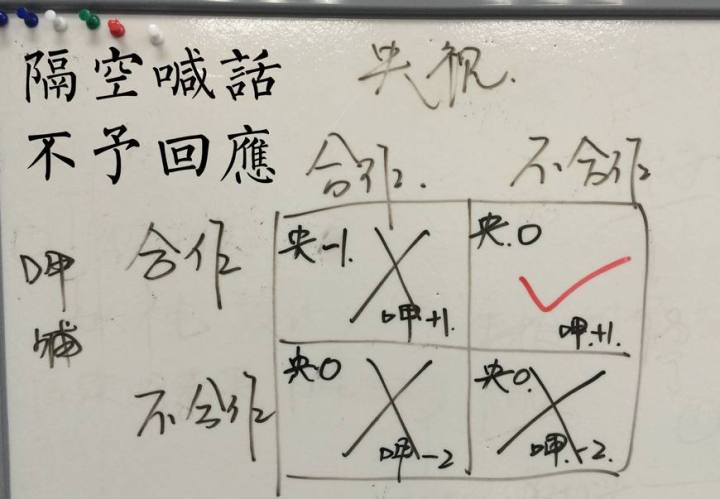 隔空喊話
不予回應
央视.
合作.
不合作
呷
哺
合作
央-1.
呷+1.
央.0
呷.+1.
不合作
央.0
呷-2
央0.
呷.-2.